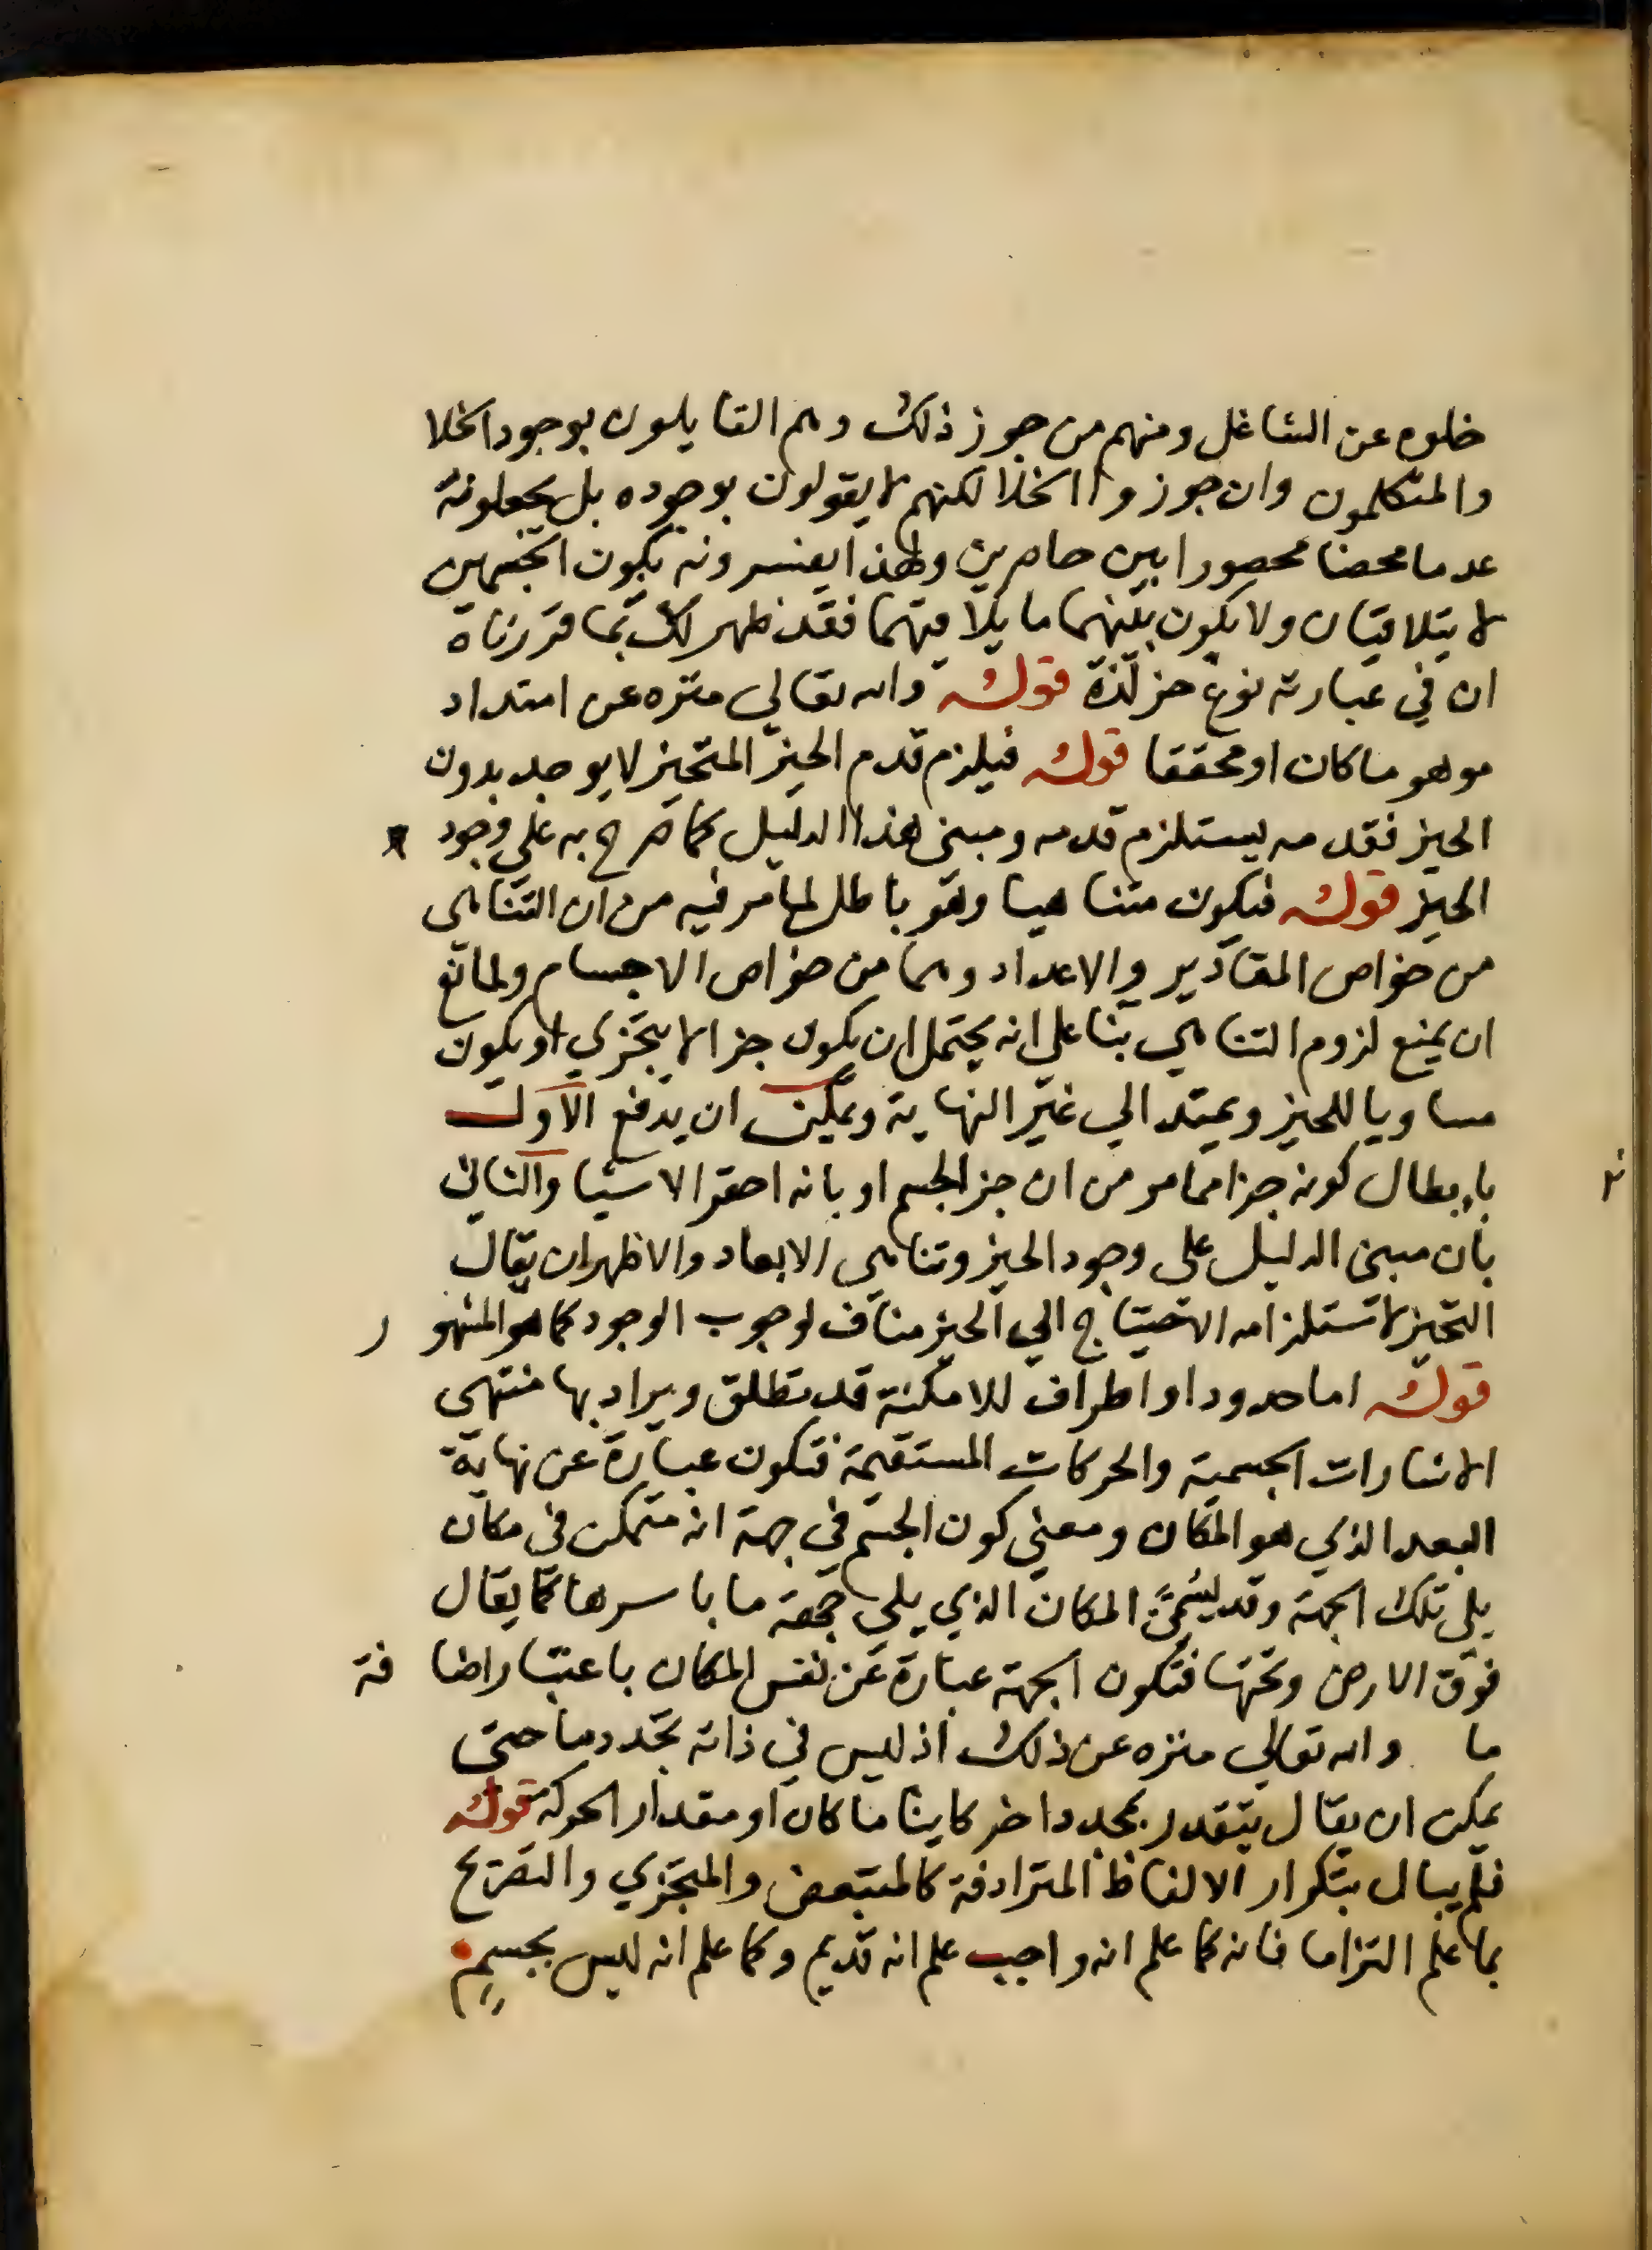 خلوه عن الشاغل ومنهم من جوز ذلك وهم القايلون بوجود الخلا
والمتكلمون وان جوزوا الخلا لكنهم لا يقولون بوجوده بل يجعلونه
عدما محضا محصورا بين حاصرين ولهذا يفسرونه بكون الجسمين
لا يتلاقيان ولا يكون بينهما ما يلاقيهما فقد ظهر لك بما قررناه
ان في عبارته نوع حزازة قوله والله تعالى منزه عن امتداد
موهوما كان او محققا قوله فيلزم قدم الحيز المتحيز لا يوجد بدون
الحيز فقدمه يستلزم قدمه ومبنى هذا الدليل كما صرح به على وجود
الحيز قوله فيكون متناهيا وهو باطل لما مر فيه من ان التناهي
من خواص المقادير والاعداد وهما من خواص الاجسام ولمانع
ان يمنع لزوم التناهي بنا على انه يحتمل ان يكون جزا لا يتجزي او يكون
مساويا للحيز ويمتد الي غير النهاية ويمكن ان يدفع الاول
بابطال كونه جزا مما مر من ان جز الجسم او بانه احقر الاشيا والثاني
بان مبنى الدليل على وجود الحيز وتناهي الابعاد والاظهر ان يقال
التحيز لاستلزامه الاحتياج الي الحيز مناف لوجوب الوجود كما هو المشهور
قوله اما حدود او اطراف للامكنة قد تطلق ويراد بها منتهى
الاشارات الجسمية والحركات المستقيمة فتكون عبارة عن نهاية
البعد الذي هو المكان ومعنى كون الجسم في جهة انه متمكن في مكان
يلي تلك الجهة وقد يسمى المكان الذي يلي جهة ما باسرها كما يقال
فوق الارض وتحتها فتكون الجهة عبارة عن نفس المكان باعتبار اضافة
ما والله تعالي منزه عن ذلك اذ ليس في ذاته تجدد ما حتى
يمكن ان يقال يتقدر بمجدد اخر كاينا ما كان او مقدار الحركة قوله
فلم يبال بتكرار الالفاظ المترادفة كالمتبعض والمتجزي والتصريح
بما علم التزاما فانه كما علم انه واجب علم انه قديم وكما علم انه ليس بجسم